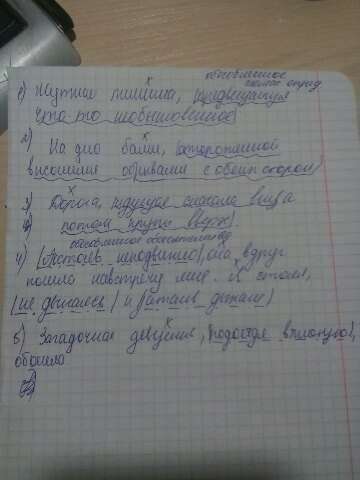 обособленное
соглас. опред
1) Жуткая тишина, (предвещающая
что-то необыкновенное)
2)
На дно балки, (сторожимой
высокими обрывами с обеих сторон)
3) Дорога, идущая сначала вниз а
потом круто вверх).
обособленное обстоятельство
4) (Постояв неподвижно), она вдруг
пошла навстречу мне. Я стоял,
(не двигаясь) и (затаив дыхание)
5) Загадочная девушка, (подойдя вплотную),
обошла